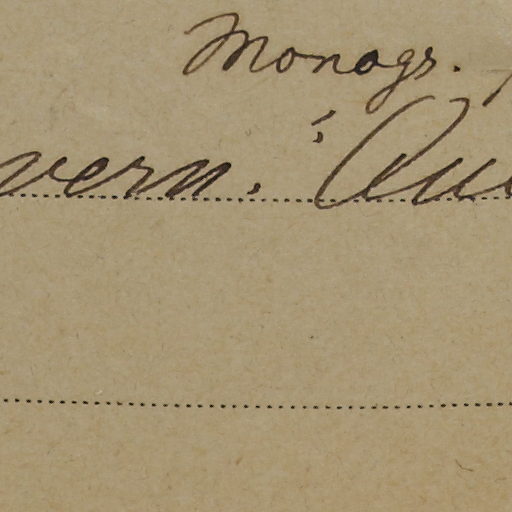 Monogr.
vern. Au